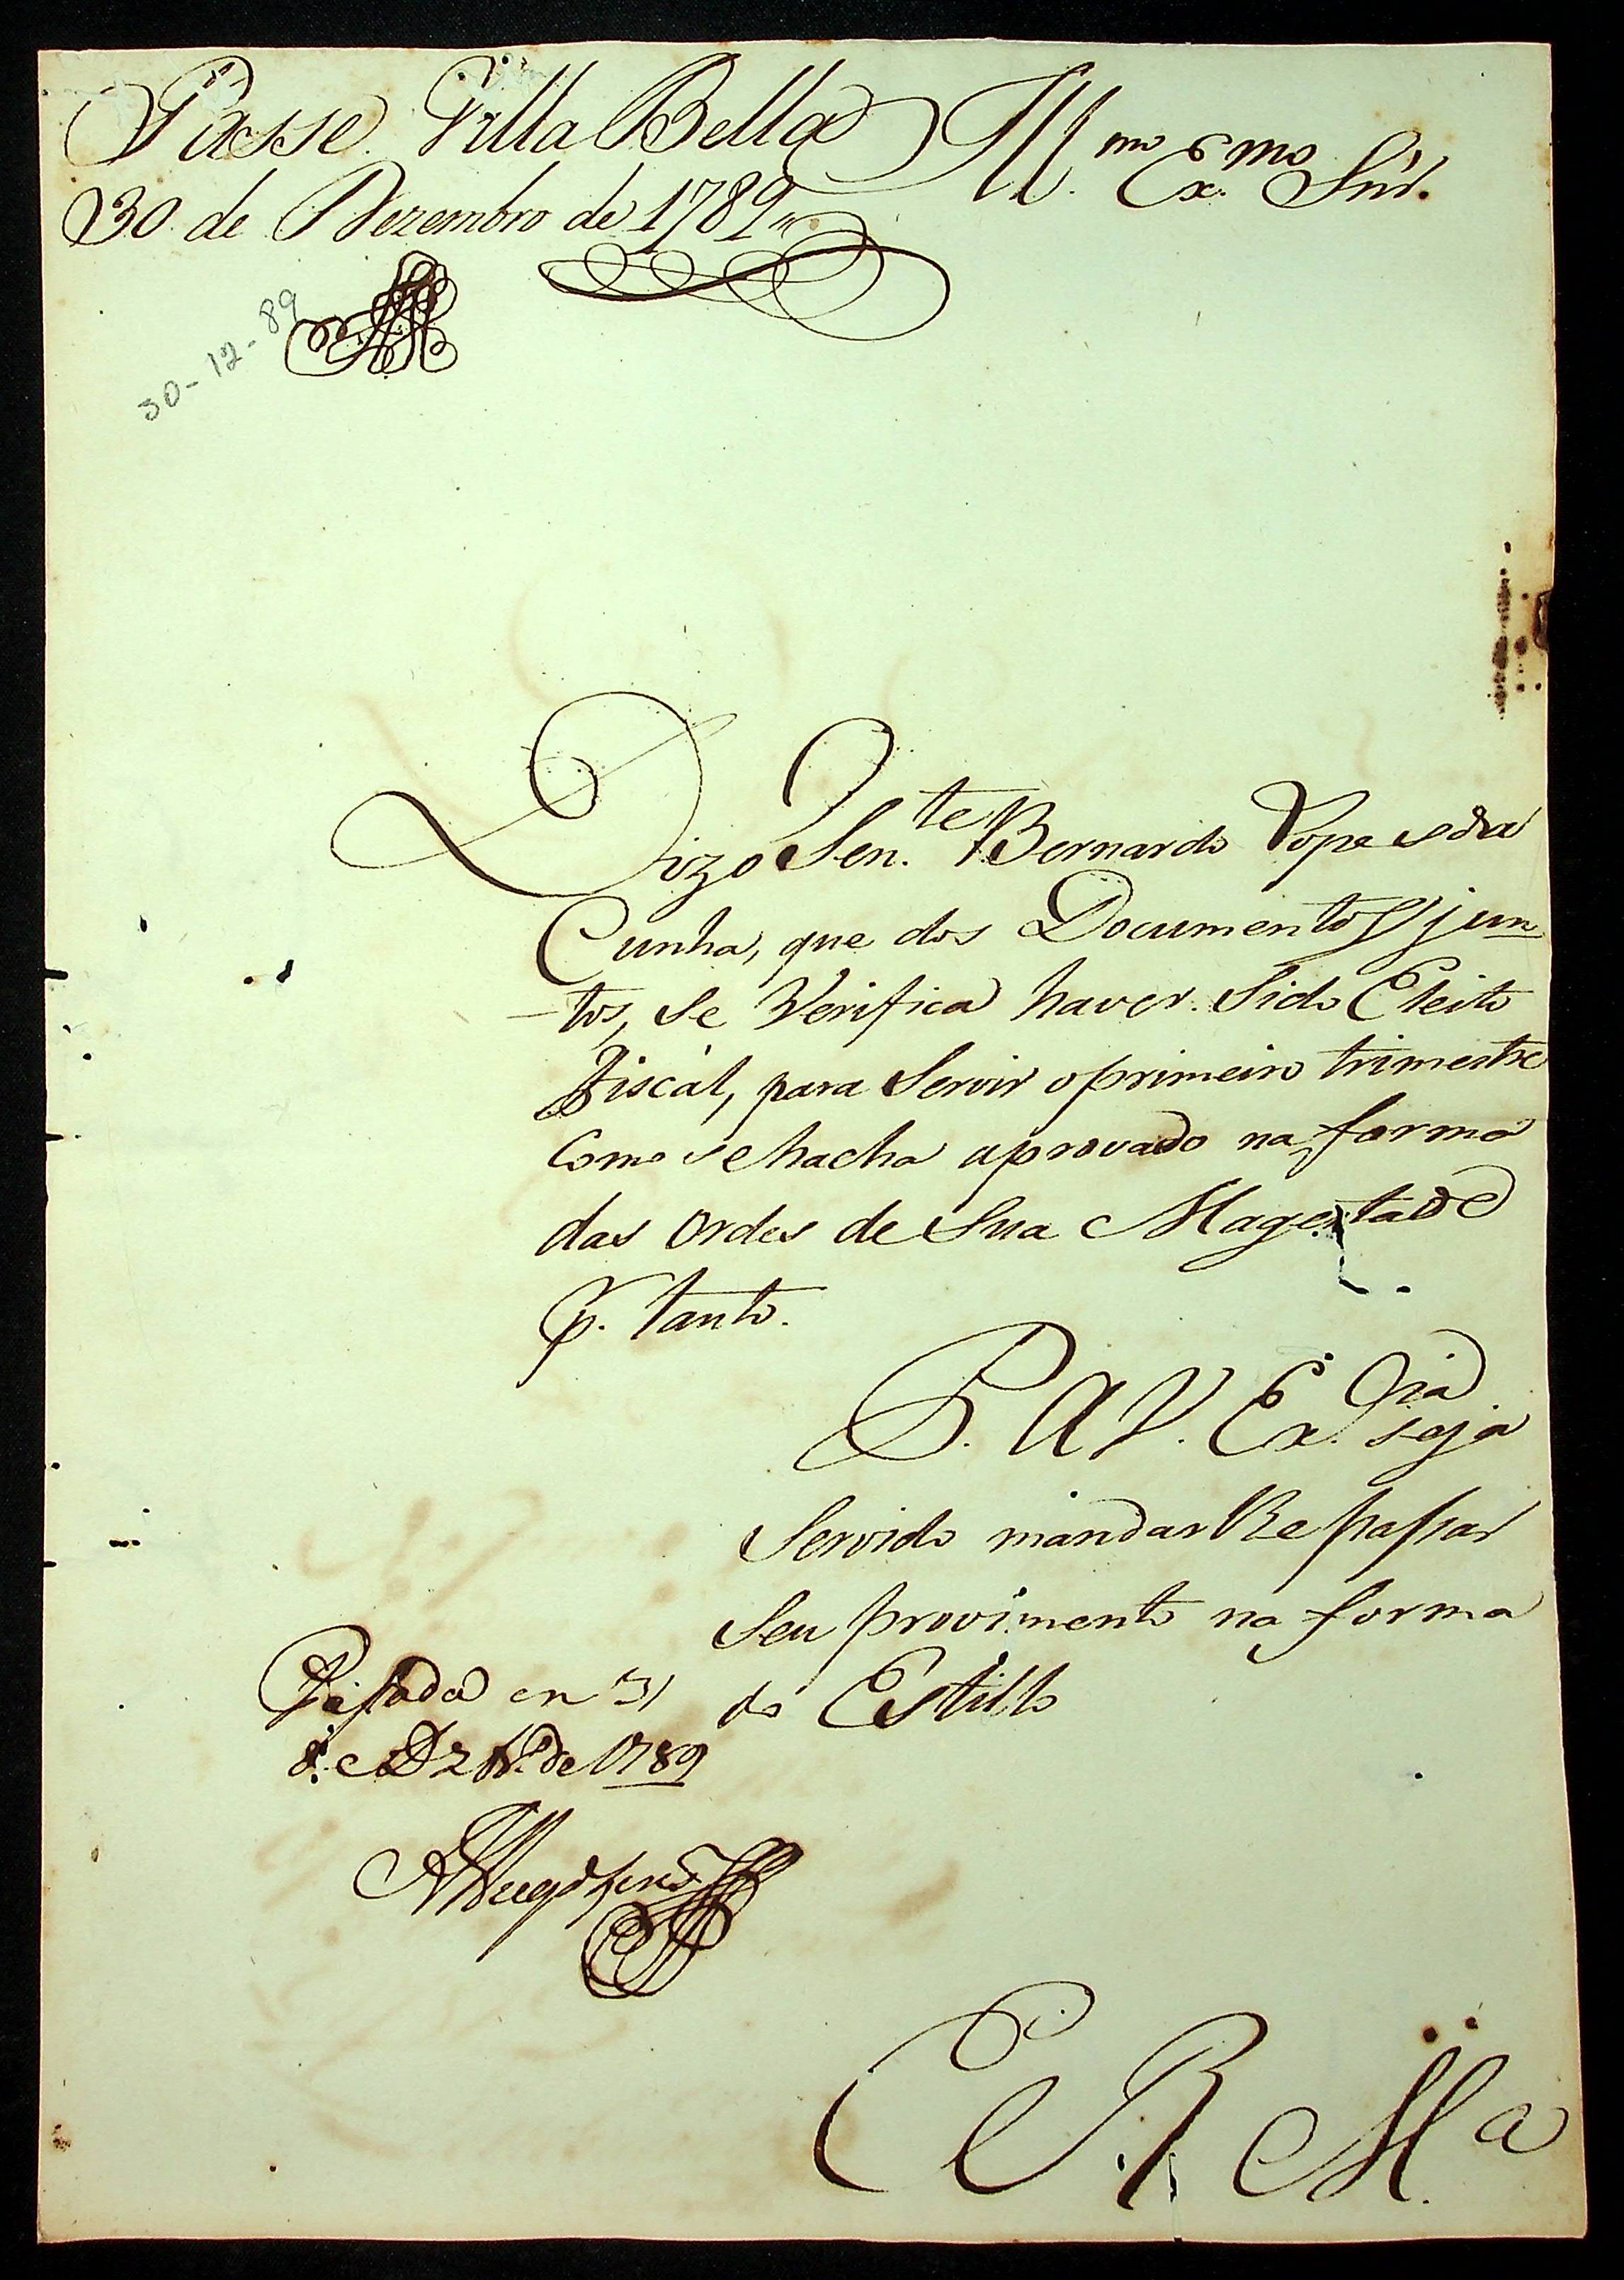 Passe Villa Bella
30 de Dezembro de 1789
30-12-89
Ill.mo Ex.mo Snr.
Diz o Ten.te Bernardo Lopes da
Cunha, que dos Documentos jun
-tos, se Verifica haver Sido Eleito
Fiscal, para Servir o primeiro trimestre
Como se hacha aprovado na forma
das Ordes de Sua Magestade
P. tanto.
P. A V. Ex.cia seja
Servido mandar lhe passar
Seu provimento na forma
do Estillo
Passada en 31
de Dzbr.o de 1789
E. R. M.a